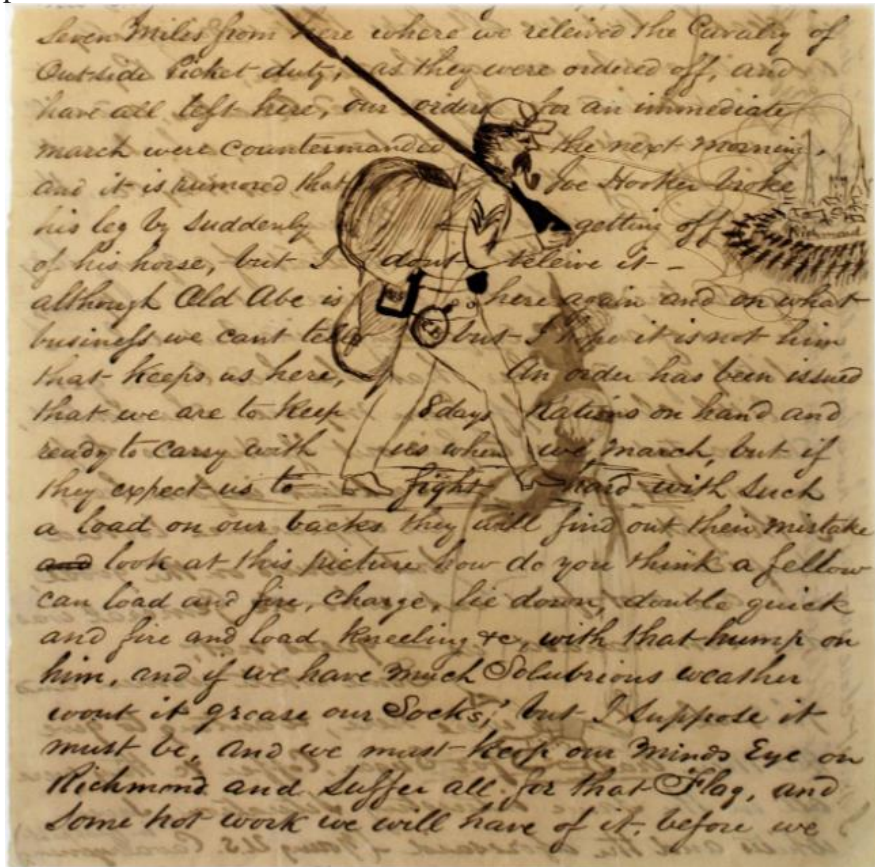 Seven Miles from here where we releived the Cavalry of
Out-side Picket duty, as they were ordered off, and
have all left here, our orders for an immediate
march were Countermanded the next morning,
and it is rumored that Joe Hooker broke
his leg by suddenly getting off
Richmond
of his horse, but I dont beleive it -
although Old Abe is here again and on what
business we cant tell but I hope it is not him
that keeps us here, An order has been issued
that we are to keep 8 days Rations on hand and
ready to carry with us when we march, but if
they expect us to fight hard with such
a load on our backs they will find out their mistake
and look at this picture how do you think a fellow
can load and fire, charge, lie down, double quick
and fire and load kneeling &c, with that hump on
him, and if we have much Solubrious weather
wont it grease our Socks, but I suppose it
must be, and we must keep our Minds Eye on
Richmond and Suffer all for that Flag, and
some hot work we will have of it, before we